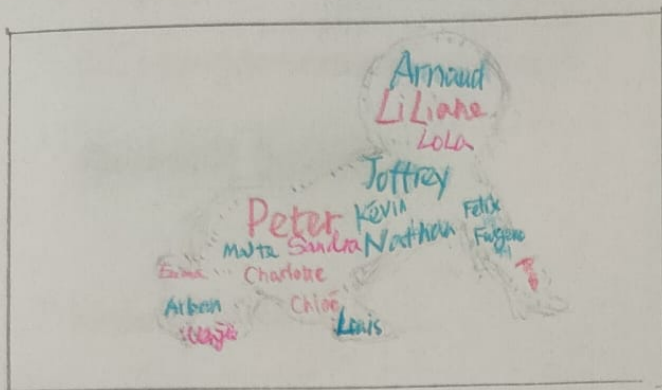 Arnaud
Liliane
Lola
Joffrey
Peter Kevin Felix
Malta Sandra Nathan Eugene
Charlotte
Arban Chloé
Louis